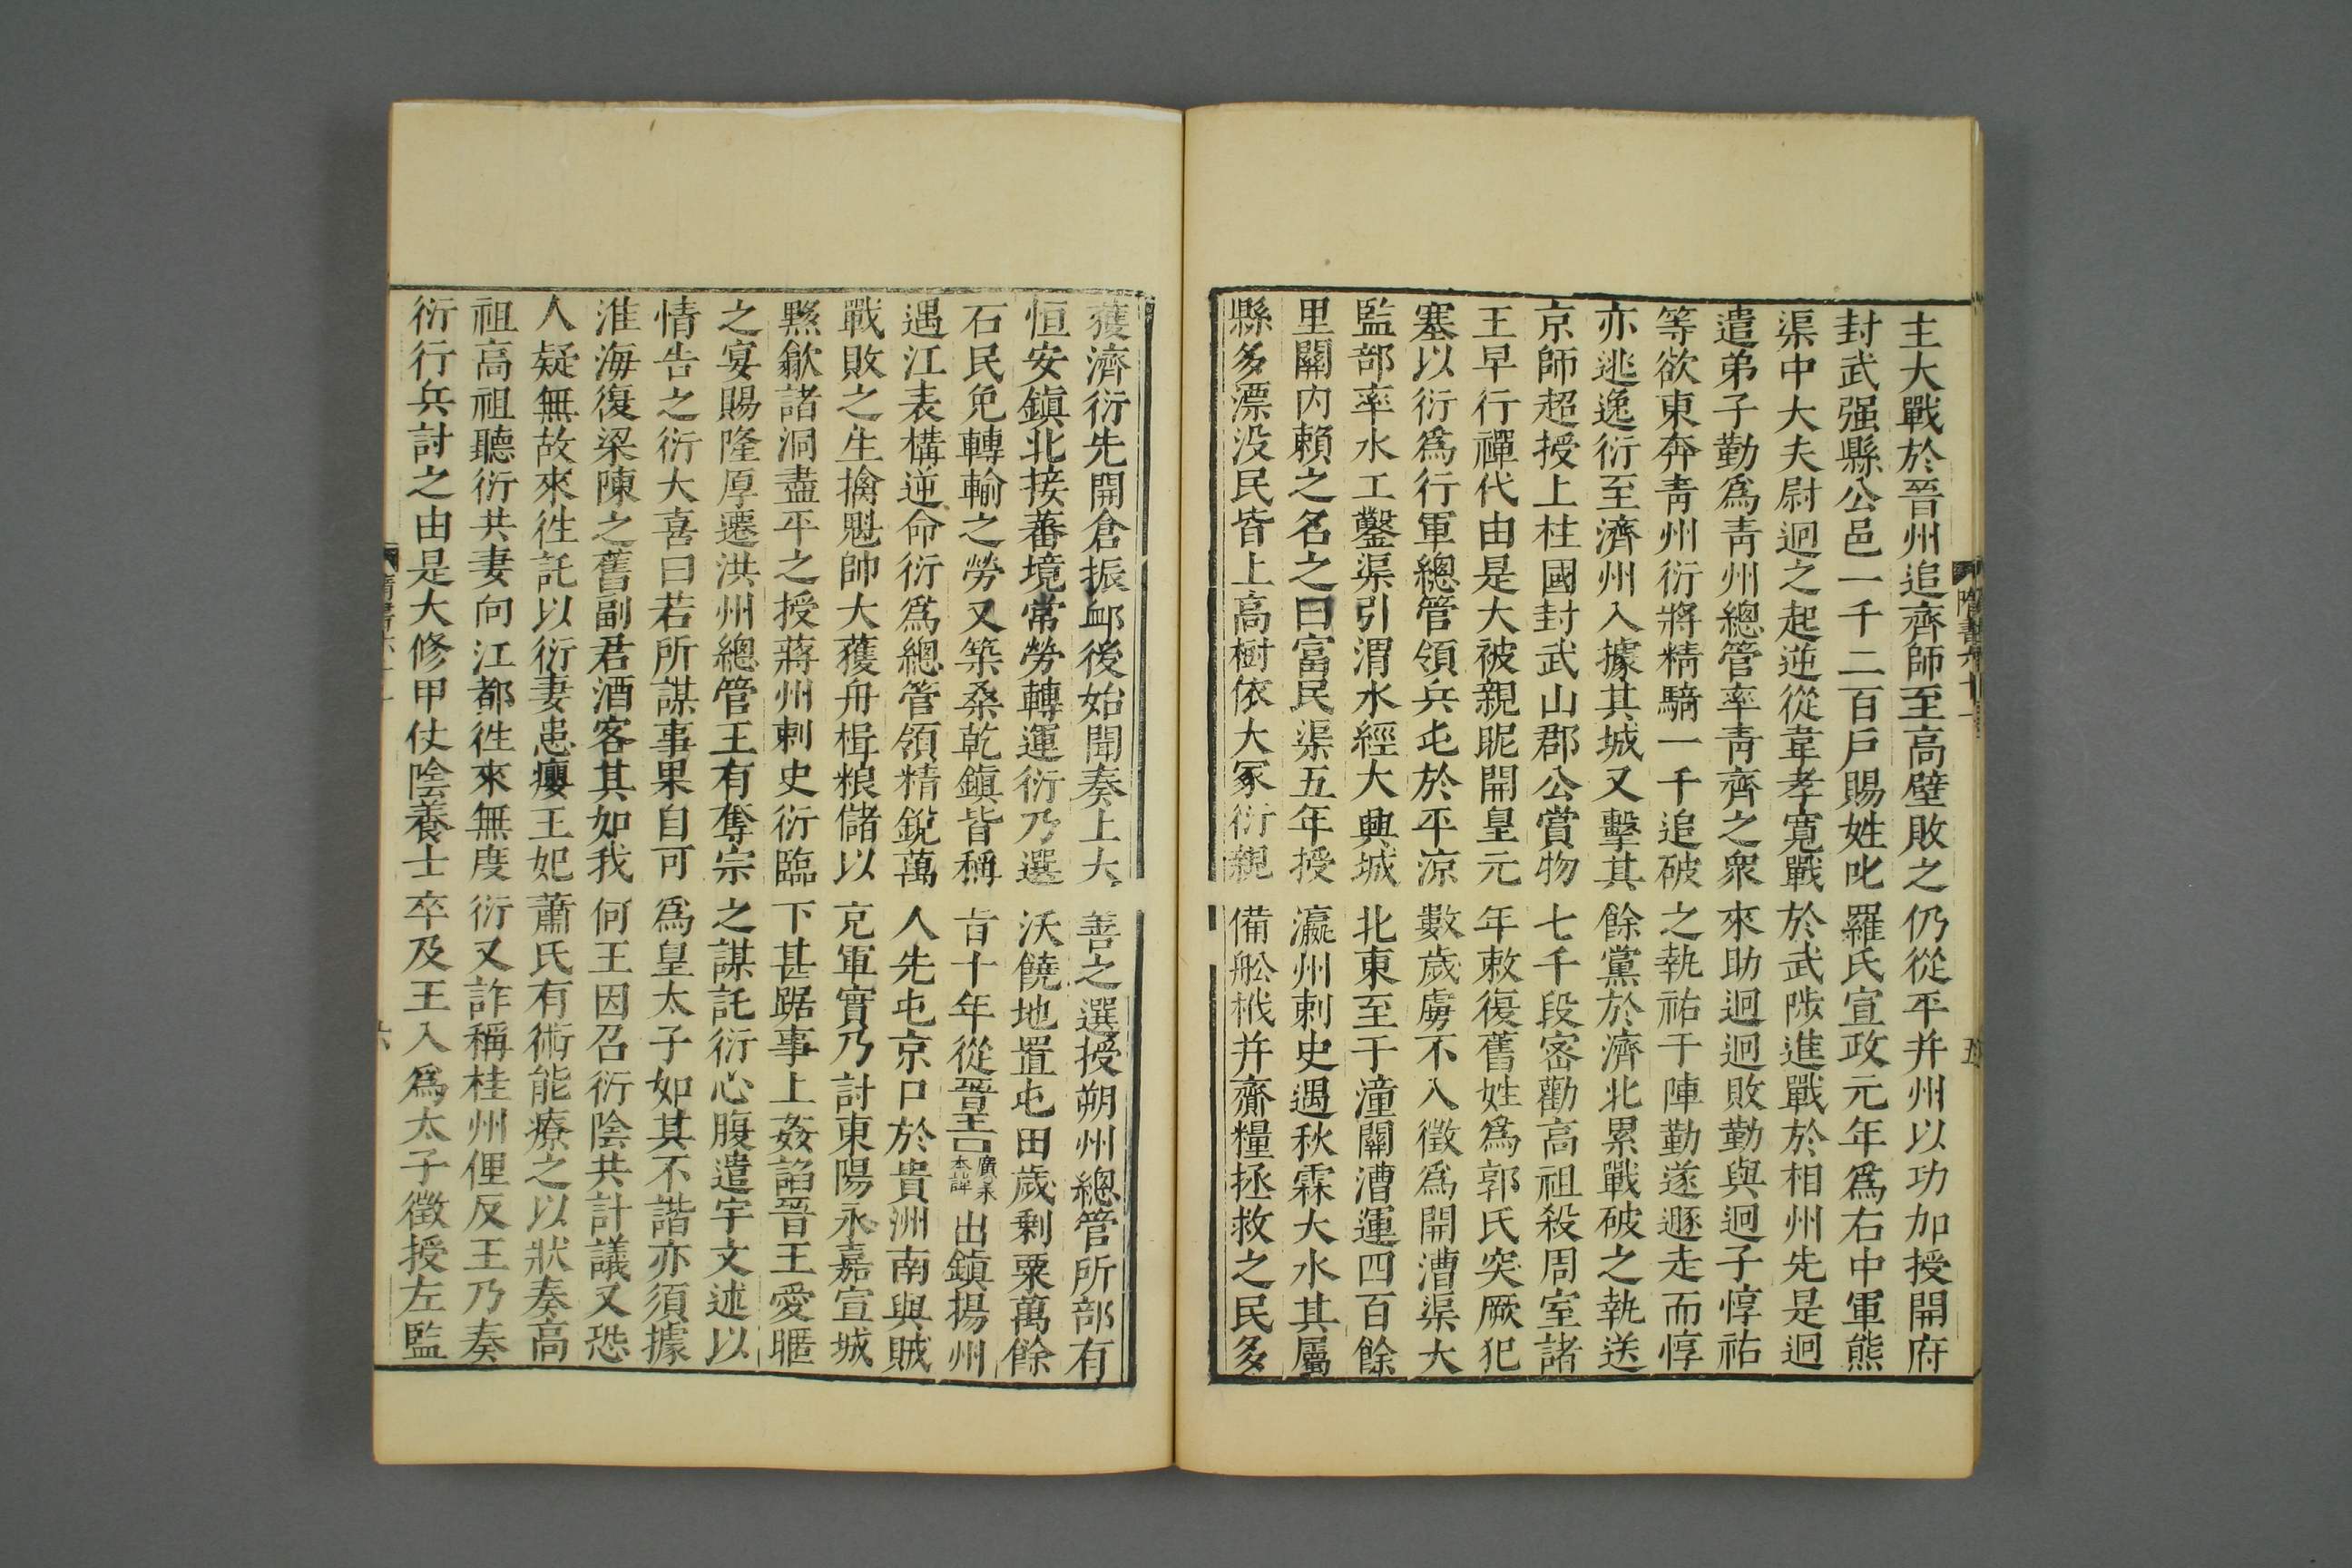 主大戰於晉州追齊師至高壁敗之仍從平并州以功加授開府
封武强縣公邑一千二百戶賜姓叱羅氏宣政元年爲右中軍熊
渠中大夫尉迥之起逆從韋孝寬戰於武陟進戰於相州先是迥
遣弟子勤爲青州總管率青齊之衆來助迥迥敗勤與迥子惇祐
等欲東奔青州衍將精騎一千追破之執祐于陣勤遂遯走而惇
亦逃逸衍至濟州入據其城又擊其餘黨於濟北累戰破之執送
京師超授上柱國封武山郡公賞物七千段密勸高祖殺周室諸
王早行禪代由是大被親昵開皇元年敕復舊姓爲郭氏突厥犯
塞以衍爲行軍總管領兵屯於平凉數歲虜不入徵爲開漕渠大
監部率水工鑿渠引渭水經大興城北東至于潼關漕運四百餘
里關內賴之名之曰富民渠五年授瀛州刺史遇秋霖大水其屬
縣多漂没民皆上高樹依大冢衍親備舩栰并齎糧拯救之民多
隋書六十一
五
獲濟衍先開倉振卹後始聞奏上大善之選授朔州總管所部有
恒安鎮北接蕃境常勞轉運衍乃選沃饒地置屯田歲剩粟萬餘
石民免轉輸之勞又築桑乾鎮皆稱旨十年從晉王廣宋本諱出鎮揚州
遇江表構逆命衍爲總管領精銳萬人先屯京口於貴洲南與賊
戰敗之生擒魁帥大獲舟楫粮儲以充軍實乃討東陽永嘉宣城
黟歙諸洞盡平之授蔣州刺史衍臨下甚踞事上姦諂晉王愛暱
之宴賜隆厚遷洪州總管王有奪宗之謀託衍心腹遣宇文述以
情告之衍大喜曰若所謀事果自可爲皇太子如其不諧亦須據
淮海復梁陳之舊副君酒客其如我何王因召衍陰共計議又恐
人疑無故來徃託以衍妻患癭王妃蕭氏有術能療之以狀奏高
祖高祖聽衍共妻向江都徃來無度衍又詐稱桂州俚反王乃奏
衍行兵討之由是大修甲仗陰養士卒及王入爲太子徵授左監
六